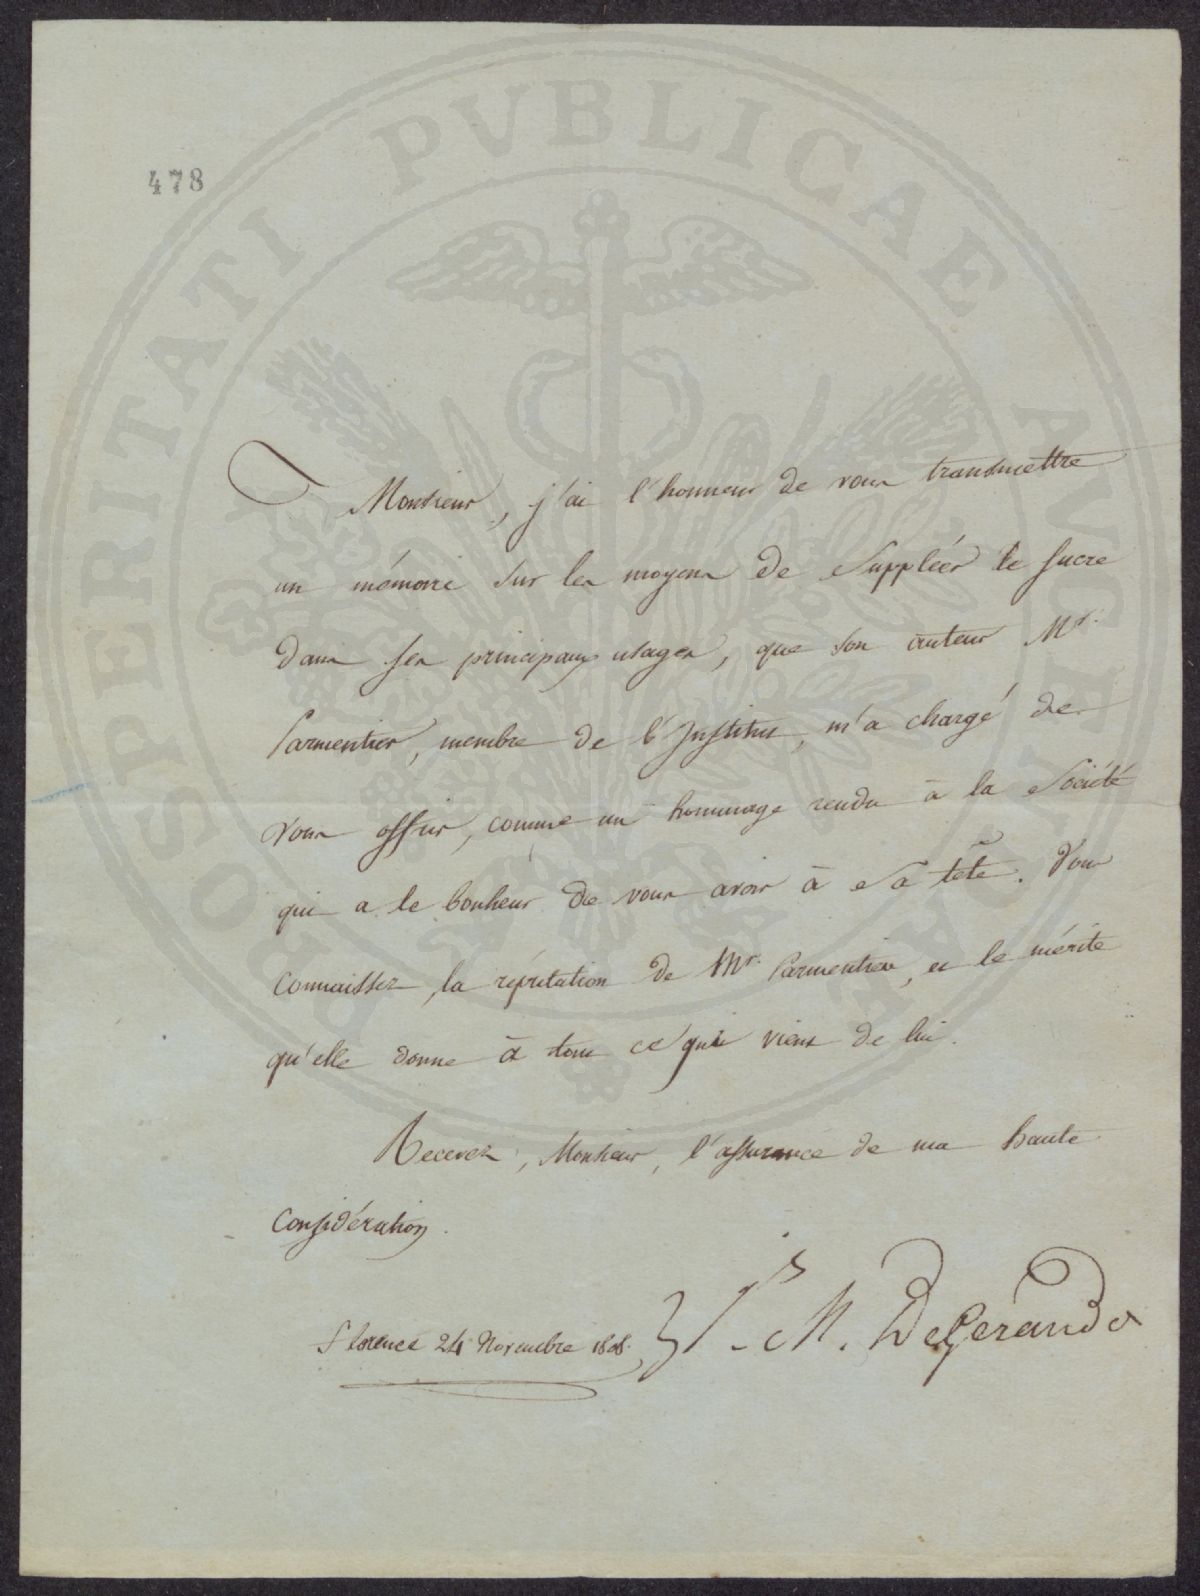 478
PROSPERITATI PVBLICAE AVGENDAE
Monsieur, j'ai l'honneur de vous transmettre
un mémoire sur les moyens de Suppléer le sucre
dans ses principaux usages, que son auteur Mr.
Parmentier, membre de l'Institut, m'a chargé de
vous offrir, comme un hommage rendu à la Société
qui a le bonheur de vous avoir à sa tête. Vous
connaissez la réputation de Mr. Parmentier, et le mérite
qu'elle donne à tout ce qui vient de lui.
Recevez, Monsieur, l'assurance de ma haute
considération.
Florence 24 Novembre 1808.
J. M. DeGerando